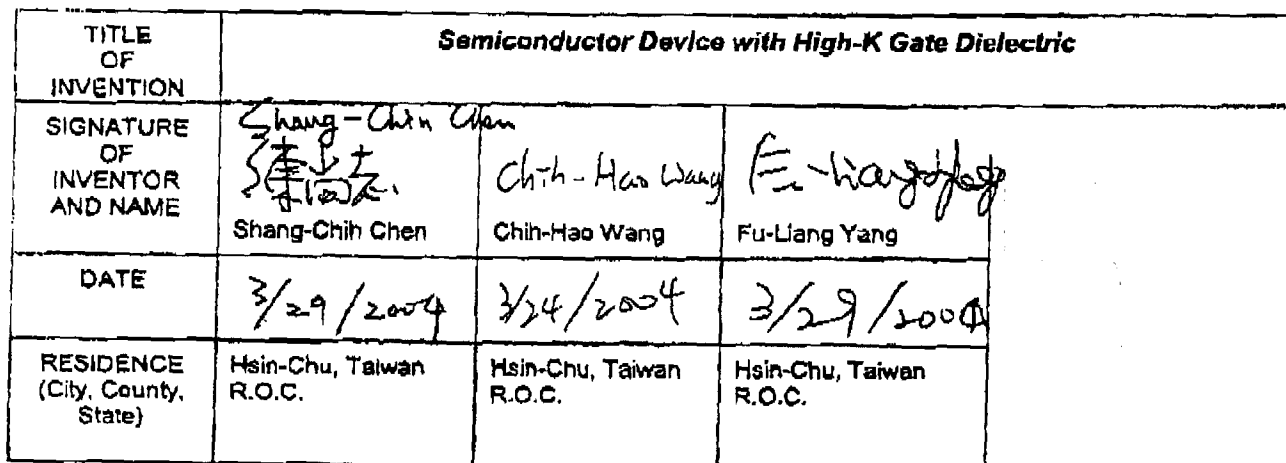 TITLE
OF
INVENTION
Semiconductor Device with High-K Gate Dielectric
SIGNATURE
OF
INVENTOR
AND NAME
Shang-Chih Chen
Shang-Chih Chen
Chih-Hao Wang
Chih-Hao Wang
Fu-Liang Yang
Fu-Liang Yang
DATE
3/29/2004
3/24/2004
3/29/2004
RESIDENCE
(City, County,
State)
Hsin-Chu, Taiwan
R.O.C.
Hsin-Chu, Taiwan
R.O.C.
Hsin-Chu, Taiwan
R.O.C.